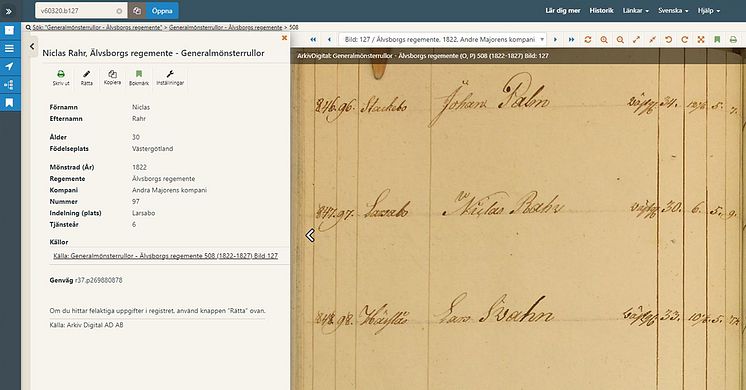 v60320.b127
Öppna
Lär dig mer
Historik
Länkar
Svenska
Hjälp
Sök: "Generalmönsterrullor - Älvsborgs regemente" > Generalmönsterrullor - Älvsborgs regemente > 508
Niclas Rahr, Älvsborgs regemente - Generalmönsterrullor
Skriv ut
Rätta
Kopiera
Bokmärk
Inställningar
Förnamn Niclas
Efternamn Rahr
Ålder 30
Födelseplats Västergötland
Mönstrad (År) 1822
Regemente Älvsborgs regemente
Kompani Andra Majorens kompani
Nummer 97
Indelning (plats) Larsabo
Tjänsteår 6
Källor
Källa: Generalmönsterrullor - Älvsborgs regemente 508 (1822-1827) Bild 127
Genväg r37.p269880878
Om du hittar felaktiga uppgifter i registret, använd knappen "Rätta" ovan.
Källa: Arkiv Digital AD AB
Bild: 127 / Älvsborgs regemente, 1822, Andre Majorens kompani
ArkivDigital: Generalmönsterrullor - Älvsborgs regemente (O, P) 508 (1822-1827) Bild: 127
846. 96. Stackebo Johan Palm 34. 5. 7.
847. 97. Larsabo Niclas Rahr 30. 6. 5. 9.
848. 98. Lars Svahn 33. 5.